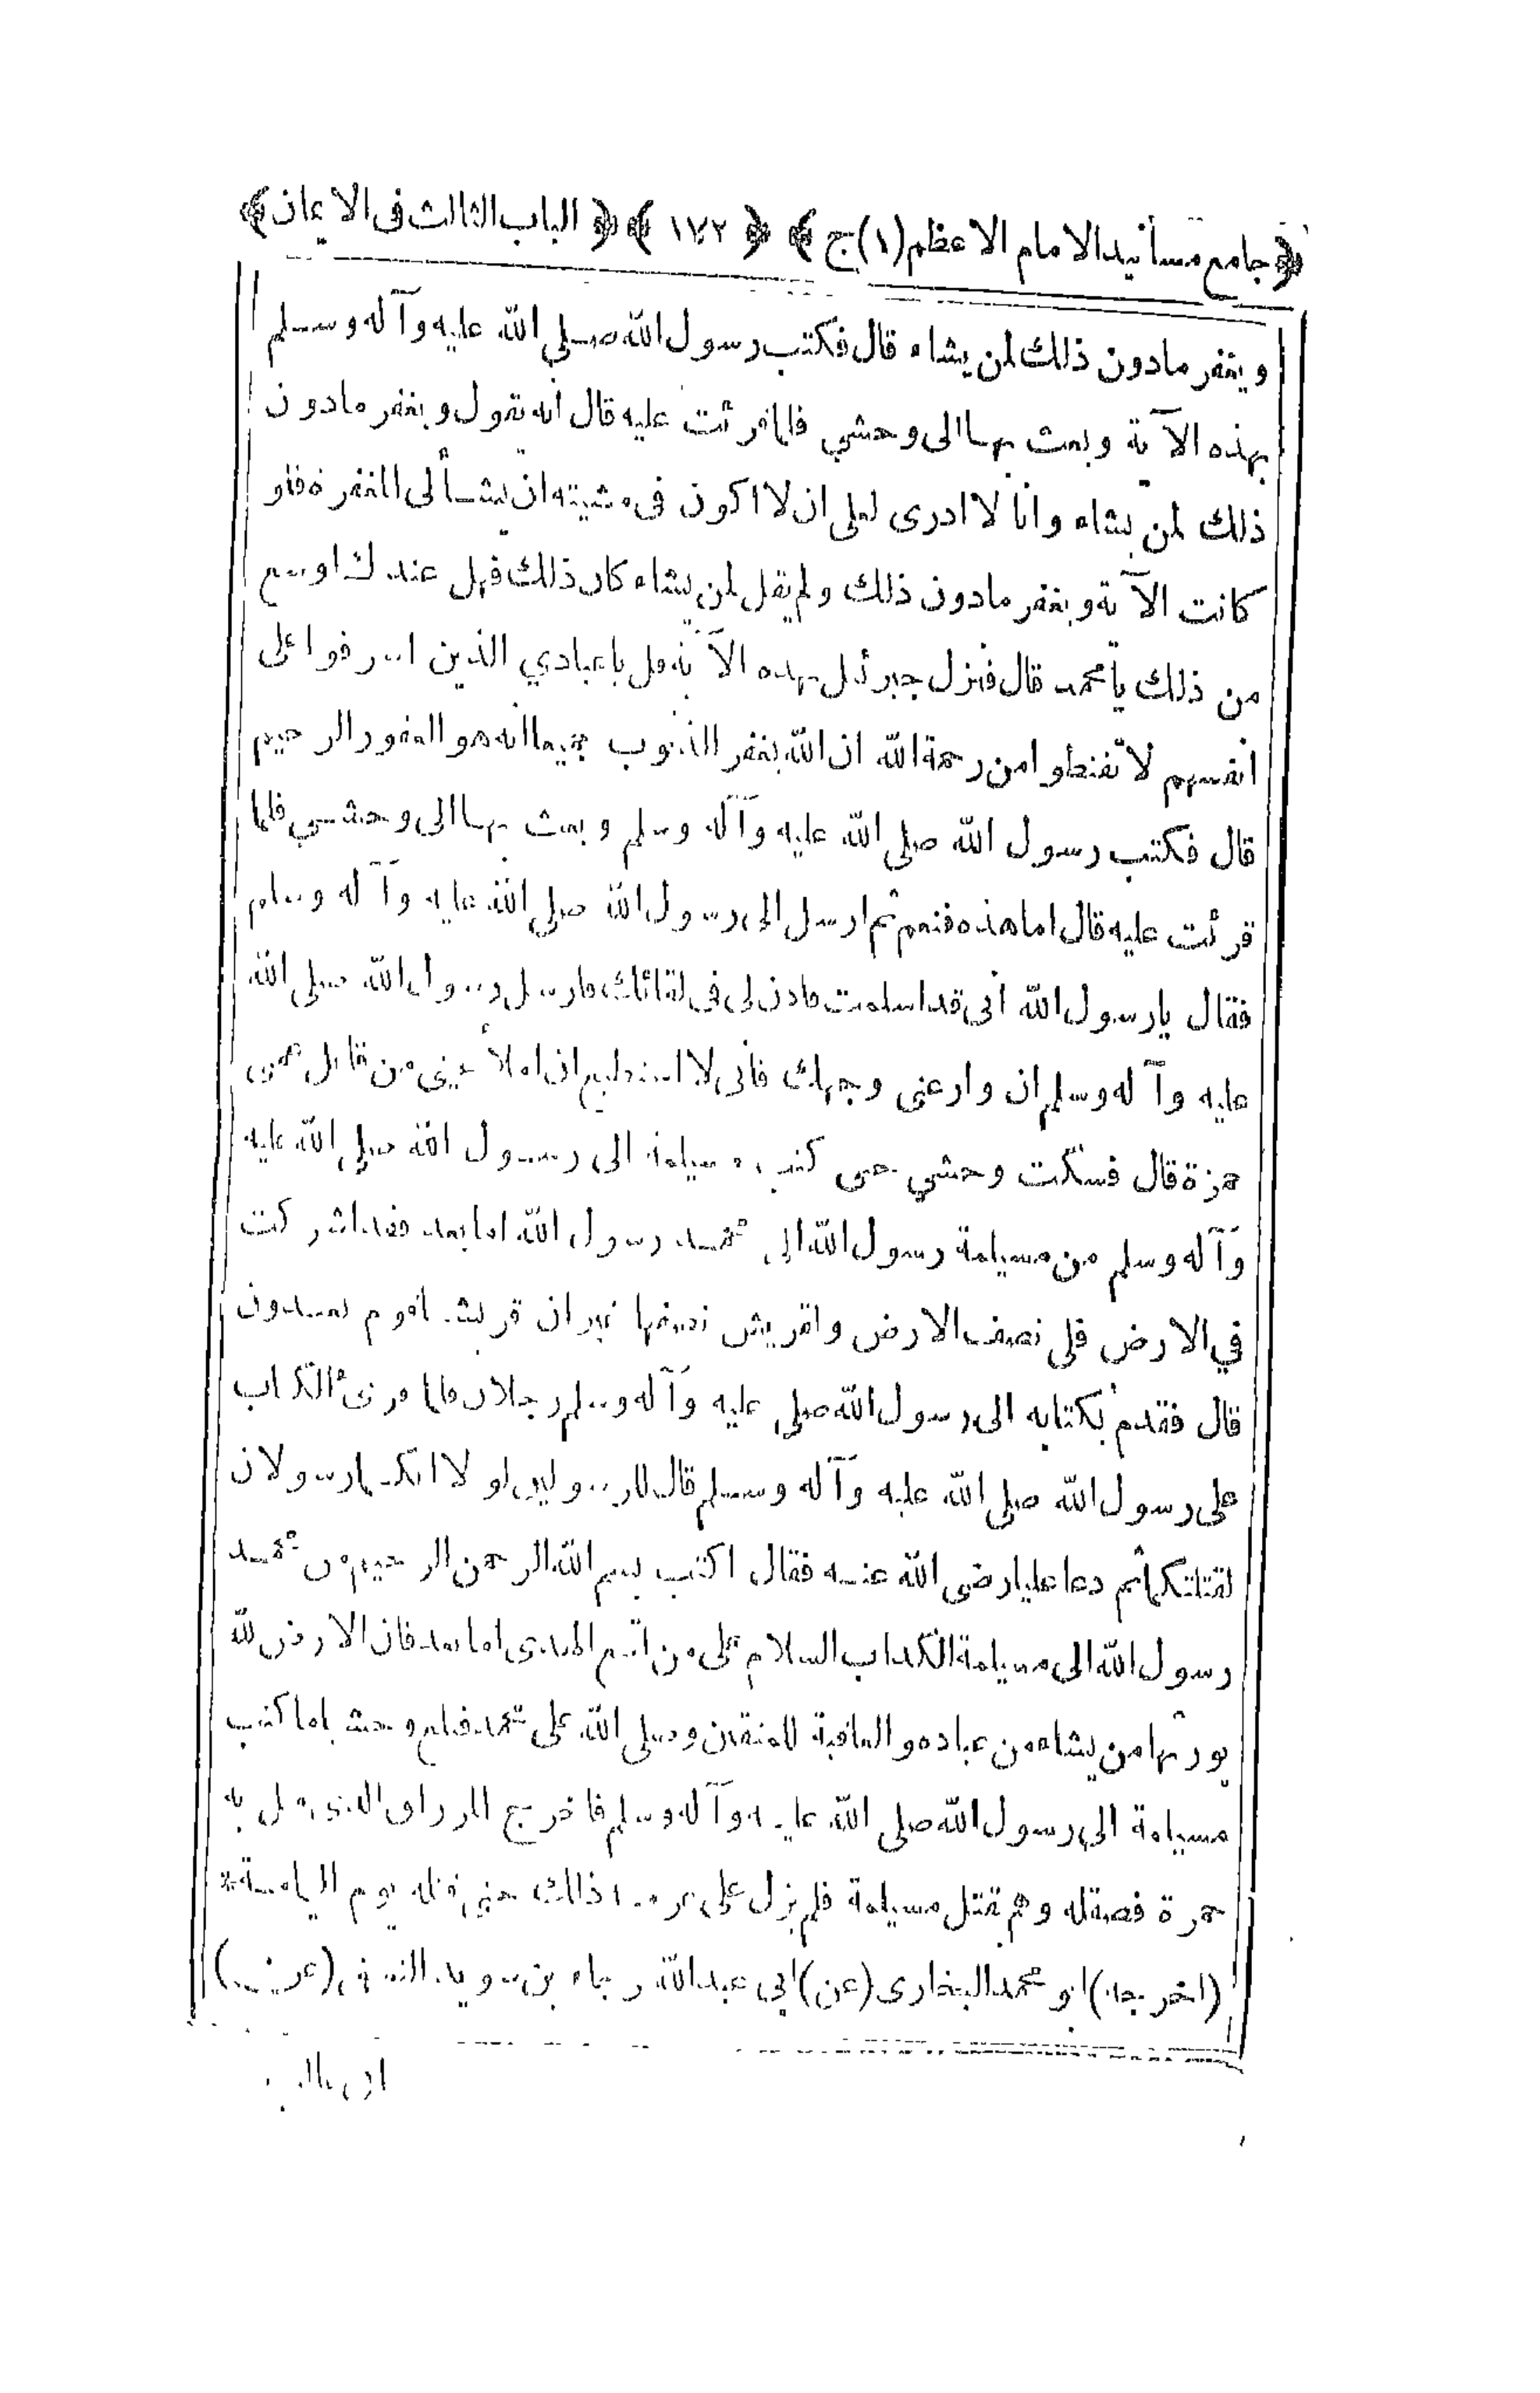 ﴿جامع مسانيد الامام الاعظم (١)ج﴾ ﴿ ١٧٢ ﴾ ﴿ الباب الثالث فى الايمان﴾
ويغفر مادون ذلك لمن يشاء قال فكتب رسول الله صلى الله عليه وآله وسلم
بهذه الآية وبعث بها الى وحشي فلما قرئت عليه قال انه يقول ويغفر مادون
ذلك لمن يشاء وانا لا ادرى لعلى ان لا اكون فى مشيته ان يشأ لى المغفرة فلو
كانت الآية ويغفر مادون ذلك ولم يقل لمن يشاء كان ذلك فهل عندك اوسع
من ذلك يا محمد قال فنزل جبرئل بهذه الآية قل ياعبادي الذين اسرفوا على
انفسهم لا تقنطوا من رحمة الله ان الله يغفر الذنوب جميعا انه هو الغفور الرحيم
قال فكتب رسول الله صلى الله عليه وآله وسلم وبعث بها الى وحشي فلما
قرئت عليه قال اما هذه فنعم ثم ارسل الى رسول الله صلى الله عليه وآله وسلم
فقال يارسول الله انى قد اسلمت فاذن لى فى لقائك فارسل رسول الله صلى الله
عليه وآله وسلم ان وار عنى وجهك فانى لا استطيع ان املأ عينى من قاتل عمى
حمزة قال فسكت وحشي حتى كتب مسيلمة الى رسول الله صلى الله عليه
وآله وسلم من مسيلمة رسول الله الى محمد رسول الله اما بعد فقد اشركت
في الارض فلى نصف الارض ولقريش نصفها غير ان قريشا قوم يعتدون
قال فقدم بكتابه الى رسول الله صلى عليه وآله وسلم رجلان فلما قرئ الكتاب
على رسول الله صلى الله عليه وآله وسلم قال للرسولين لو لا انكما رسولان
لقتلتكما ثم دعا عليا رضى الله عنه فقال اكتب بسم الله الرحمن الرحيم من محمد
رسول الله الى مسيلمة الكذاب السلام على من اتبع الهدى اما بعد فان الارض لله
يورثها من يشاء من عباده والعاقبة للمتقين وصلى الله على محمد فبلغ وحشيا ما كتب
مسيلمة الى رسول الله صلى الله عليه وآله وسلم فاخرج المزراق الذى قتل به
حمزة فصقله وهم بقتل مسيلمة فلم يزل على عزمه ذلك حتى قتله يوم اليمامة*
(اخرجه) ابو محمد البخارى (عن) ابى عبد الله رجاء بن سويد النسفى (عن)